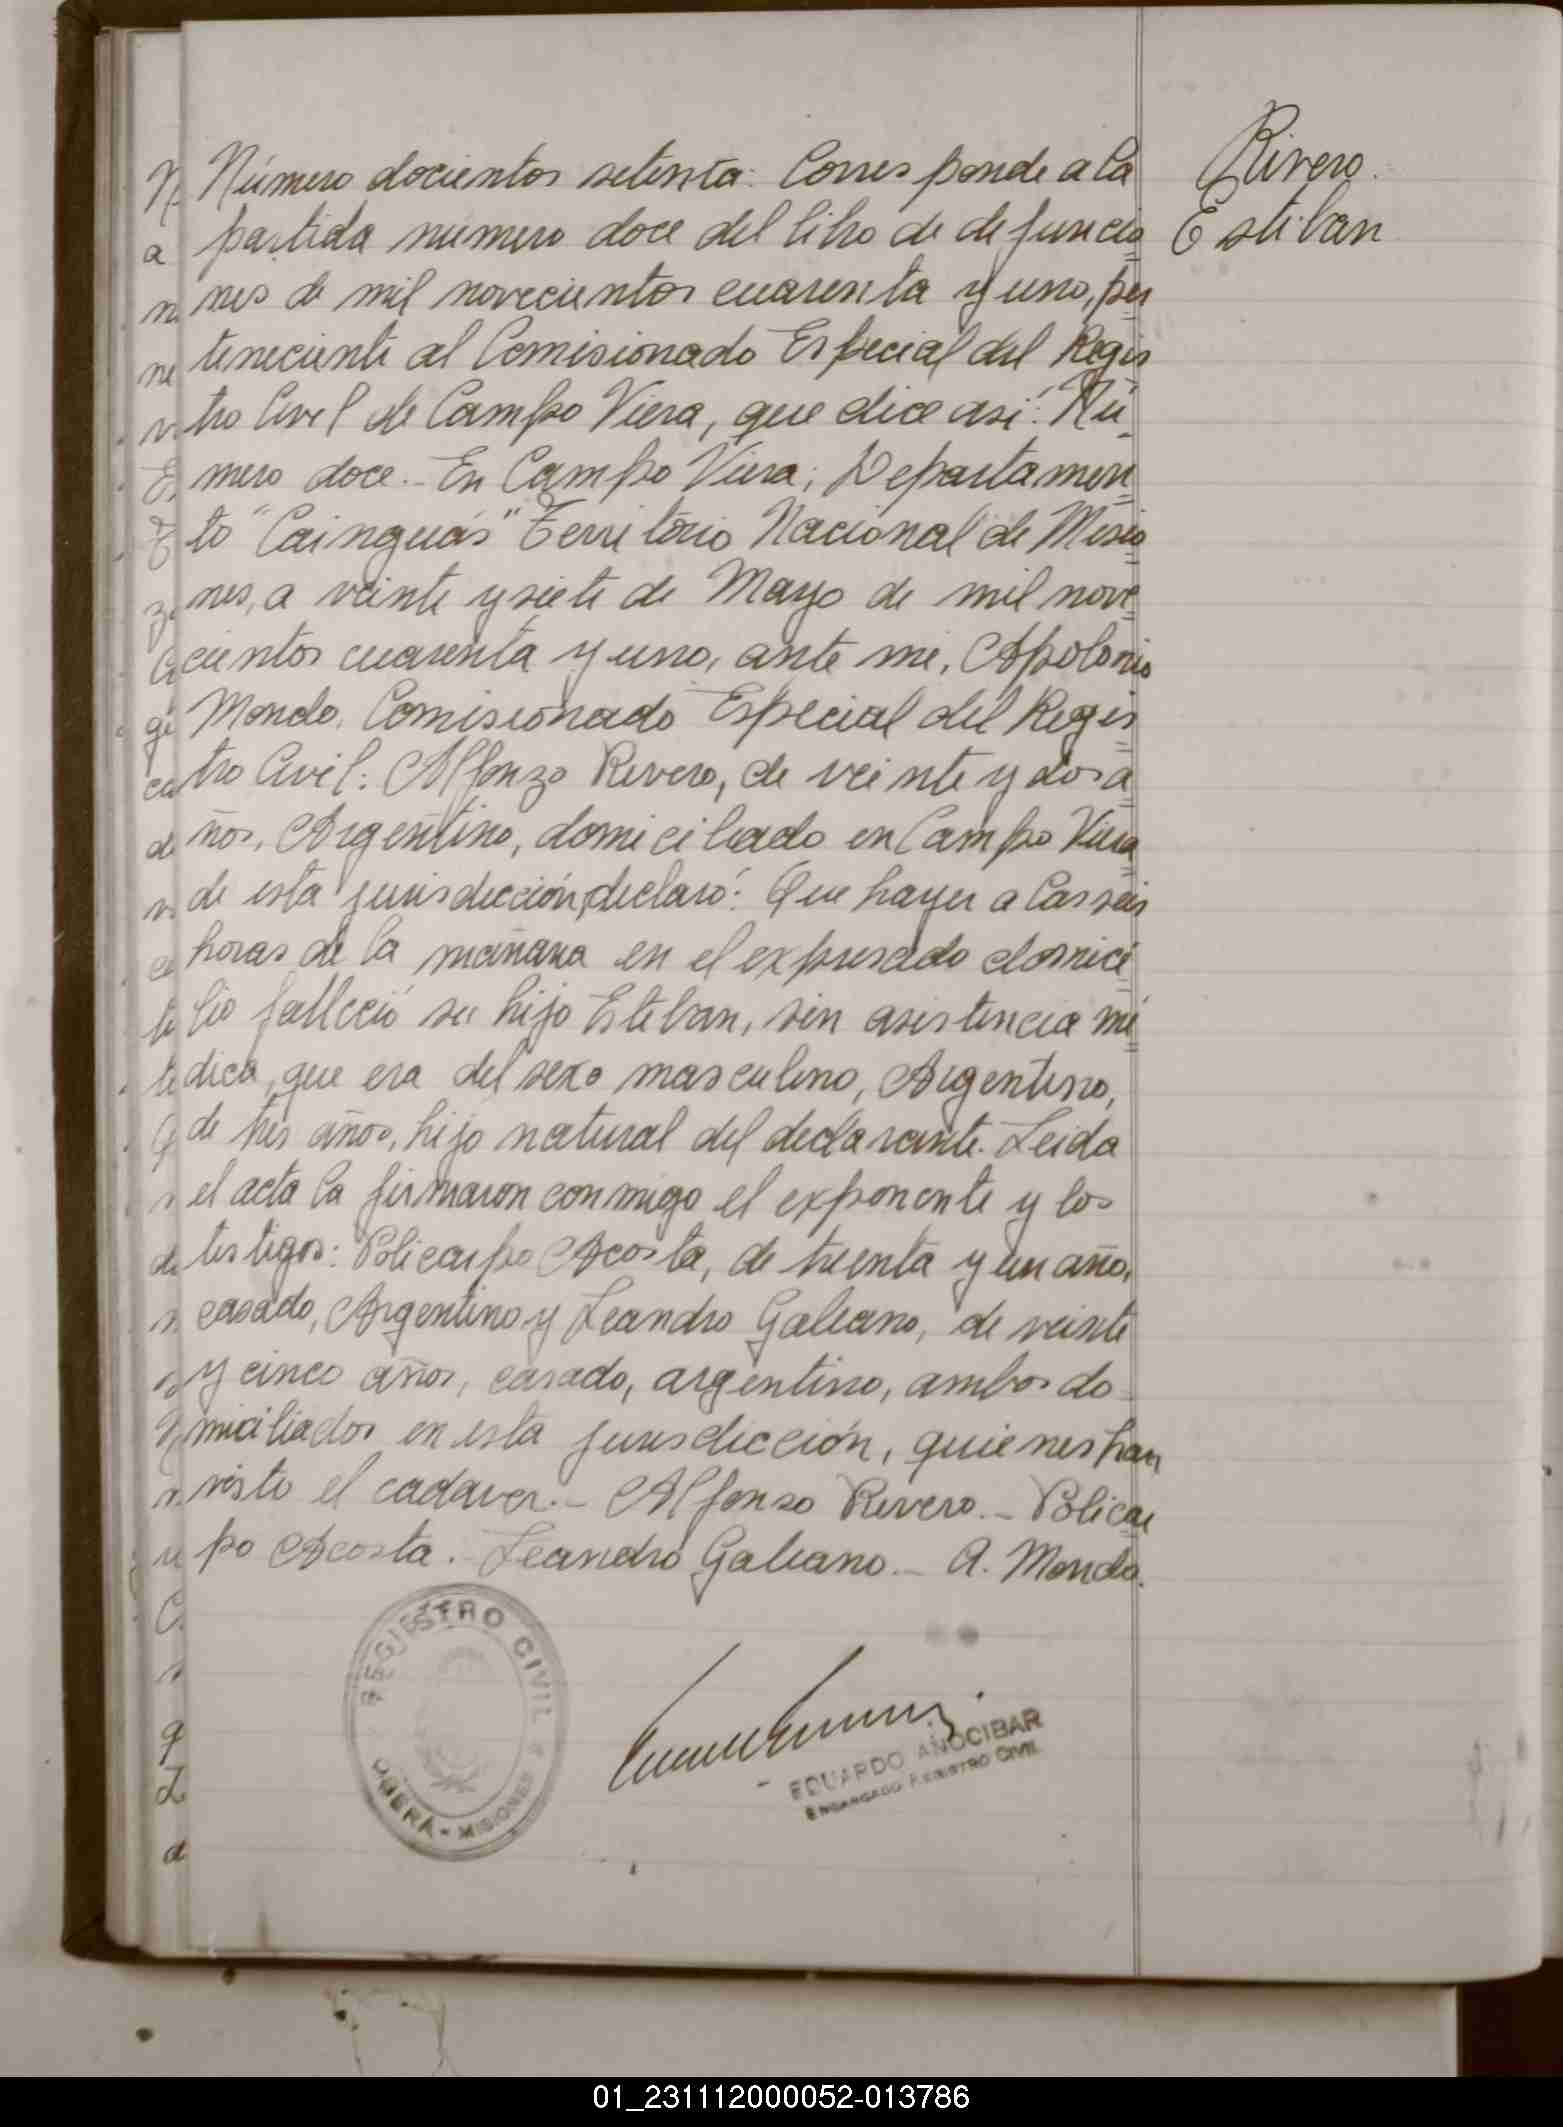 Rivero
Esteban
Número docientos setenta: Corresponde a la
partida número doce del libro de defuncio
nes de mil novecientos cuarenta y uno, per
teneciente al Comisionado Especial del Regis
tro Civil de Campo Viera, que dice así: Nú
mero doce.- En Campo Viera, Departamen
to "Cainguás" Territorio Nacional de Misio
nes, a veinte y siete de Mayo de mil nove
cientos cuarenta y uno, ante mi, Apolonio
Mondo, Comisionado Especial del Regis
tro Civil: Alfonzo Rivero, de veinte y dos a
ños, Argentino, domiciliado en Campo Viera
de esta jurisdicción, declaró: Que hayer a las seis
horas de la mañana en el expresado domici
lio falleció su hijo Esteban, sin asistencia mé
dica, que era del sexo masculino, Argentino,
de tres años, hijo natural del declarante. Leida
el acta la firmaron conmigo el exponente y los
testigos: Policarpo Acosta, de treinta y un año,
casado, Argentino y Leandro Galeano, de veinte
y cinco años, casado, argentino, ambos do
miciliados en esta jurisdicción, quienes han
visto el cadaver.- Alfonso Rivero.- Policar
po Acosta.- Leandro Galeano.- A. Mondo.
REGISTRO CIVIL
OBERÁ - MISIONES
EDUARDO AÑOCIBAR
ENCARGADO REGISTRO CIVIL
01_231112000052-013786